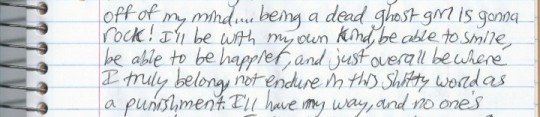 off of my mind... being a dead ghost girl is gonna
rock! I'll be with my own kind, be able to smile,
be able to be happier, and just overall be where
I truly belong, not endure in this shitty world as
a punishment. I'll have my way, and no one's